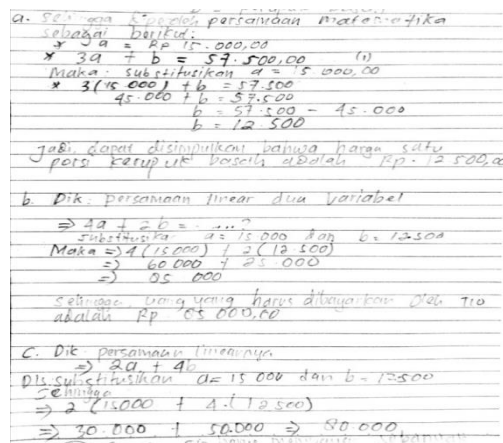 a. sehingga diperoleh persamaan matematika
sebagai berikut:
* a = Rp 15.000,00
* 3a + b = 57.500,00 (1)
Maka: substitusikan a = 15.000,00
* 3(15.000) + b = 57.500
45.000 + b = 57.500
b = 57.500 - 45.000
b = 12.500
Jadi, dapat disimpulkan bahwa harga satu
porsi kerupuk basah adalah Rp. 12.500,00
b. Dik: persamaan linear dua variabel
⇒ 4a + 2b = ....?
substitusika a = 15 000 dan b = 12500
Maka ⇒ 4(15000) + 2(12 500)
⇒ 60 000 + 25.000
⇒ 85 000
Sehingga, uang yang harus dibayarkan oleh Tio
adalah Rp 85 000,00
C. Dik: persamaan linearnya
⇒ 2a + 4b
Dis. substitusikan a = 15 000 dan b = 12500
sehingga
⇒ 2 (15000 + 4.(12 500)
⇒ 30.000 + 50.000 ⇒ 80.000